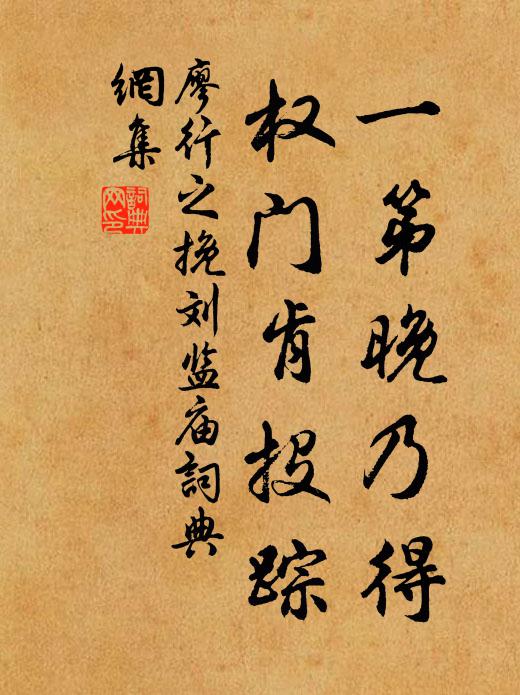 一第晚乃得
权门肯投踪
廖行之挽刘监庙詞典
網集
詞典
网印